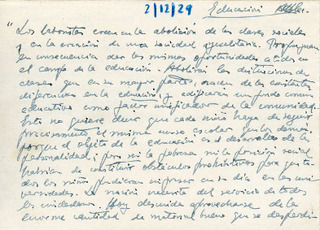 2/12/29 Educación
"Los laboristas creen en la abolición de las clases sociales
y en la creación de una sociedad igualitaria. Propugnan
en consecuencia dar las mismas oportunidades a todos en
el campo de la educación. Abolirán las distinciones de
clases que en su mayor parte, nacen de las
diferencias en la educación y edificarán un fondo común
educativo como factor unificador de la comunidad.
Esto no quiere decir que cada niño haya de seguir
el mismo curso escolar que los demás,
porque el objeto de la educación es el desarrollo de la
personalidad; pero ni la pobreza ni la posición social
habrían de constituir obstáculos prohibitivos para que
todos los niños pudieran ingresar en su día en las uni-
versidades. La nación necesita del servicio de todos
los ciudadanos. Hoy descuida aprovecharse de la
enorme cantidad de material bueno que se desperdicia